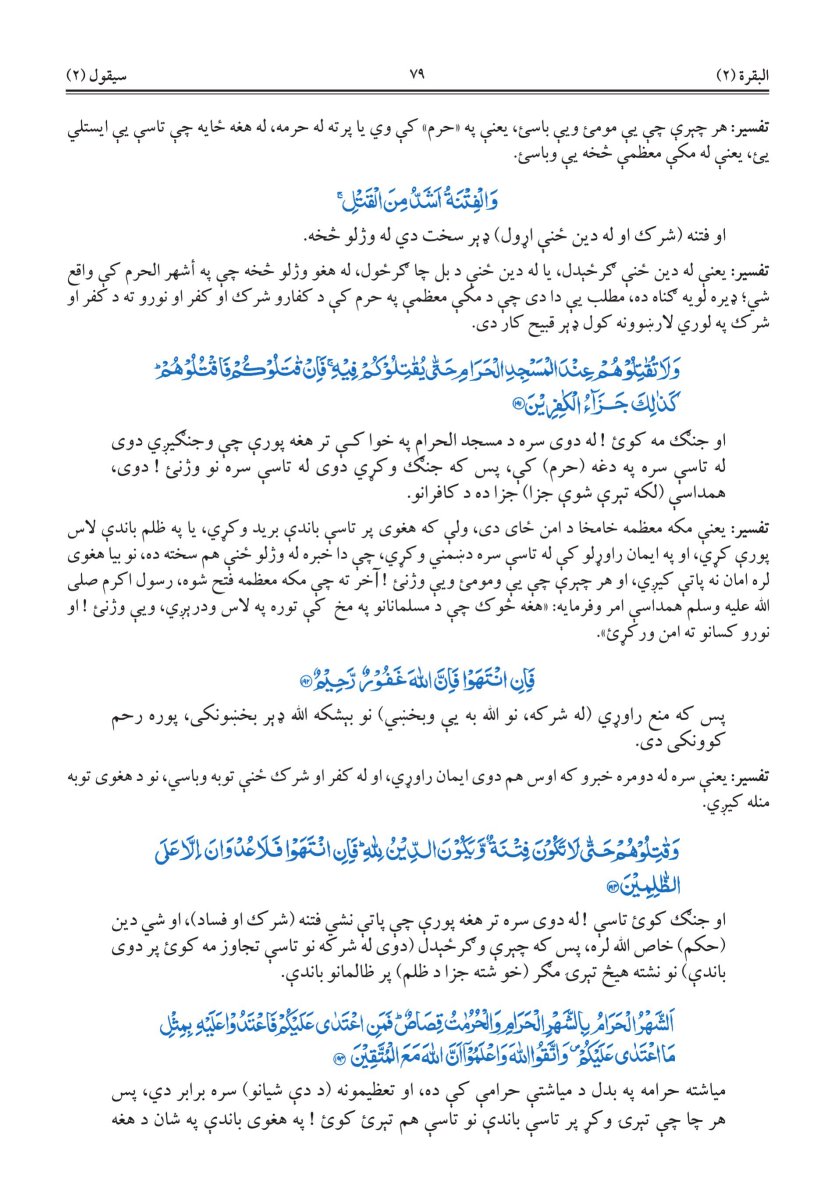 البقرة (۲)
۷۹
سيقول (۲)
تفسير: هر چېرې چې يې مومئ ويې باسئ، يعنې په «حرم» كې وي يا پرته له حرمه، له هغه ځايه چې تاسې يې ايستلي
يئ، يعنې له مكې معظمې څخه يې وباسئ.
وَالْفِتْنَةُ اَشَدُّ مِنَ الْقَتْلِ ۚ
او فتنه (شرك او له دين ځنې اړول) ډېر سخت دي له وژلو څخه.
تفسير: يعنې له دين ځنې ګرځېدل، يا له دين ځنې د بل چا ګرځول، له هغو وژلو څخه چې په أشهر الحرم كې واقع
شي؛ ډيره لويه ګناه ده، مطلب يې دا دى چې د مكې معظمې په حرم كې د كفارو شرك او كفر او نورو ته د كفر او
شرك په لوري لارښوونه كول ډېر قبيح كار دى.
وَلَا تُقٰتِلُوْهُمْ عِنْدَ الْمَسْجِدِ الْحَرَامِ حَتّٰى يُقٰتِلُوْكُمْ فِيْهِ ۚ فَاِنْ قٰتَلُوْكُمْ فَاقْتُلُوْهُمْ ؕ
كَذٰلِكَ جَزَآءُ الْكٰفِرِيْنَ ﴿۱۹۱﴾
او جنګ مه كوئ ! له دوى سره د مسجد الحرام په خوا كې تر هغه پورې چې وجنګيږي دوى
له تاسې سره په دغه (حرم) كې، پس كه جنګ وكړي دوى له تاسې سره نو وژنئ ! دوى،
همداسې (لكه تېرې شوې جزا) جزا ده د كافرانو.
تفسير: يعنې مكه معظمه خامخا د امن ځاى دى، ولې كه هغوى پر تاسې باندې بريد وكړي، يا په ظلم باندې لاس
پورې كړي، او په ايمان راوړلو كې له تاسې سره دښمني وكړي، چې دا خبره له وژلو ځنې هم سخته ده، نو بيا هغوى
لره امان نه پاتې كيږي، او هر چېرې چې يې ومومئ ويې وژنئ ! آخر ته چې مكه معظمه فتح شوه، رسول اكرم صلى
الله عليه وسلم همداسې امر وفرمايه: «هغه څوك چې د مسلمانانو په مخ كې توره په لاس ودرېږي، ويې وژنئ ! او
نورو كسانو ته امن وركړئ».
فَاِنِ انْتَهَوْا فَاِنَّ اللّٰهَ غَفُوْرٌ رَّحِيْمٌ ﴿۱۹۲﴾
پس كه منع راوړي (له شركه، نو الله به يې وبخښي) نو بېشكه الله ډېر بخښونكى، پوره رحم
كوونكى دى.
تفسير: يعنې سره له دومره خبرو كه اوس هم دوى ايمان راوړي، او له كفر او شرك ځنې توبه وباسي، نو د هغوى توبه
منله كيږي.
وَقٰتِلُوْهُمْ حَتّٰى لَا تَكُوْنَ فِتْنَةٌ وَّيَكُوْنَ الدِّيْنُ لِلّٰهِ ؕ فَاِنِ انْتَهَوْا فَلَا عُدْوَانَ اِلَّا عَلَى
الظّٰلِمِيْنَ ﴿۱۹۳﴾
او جنګ كوئ تاسې ! له دوى سره تر هغه پورې چې پاتې نشي فتنه (شرك او فساد)، او شي دين
(حكم) خاص الله لره، پس كه چېرې وګرځېدل (دوى له شركه نو تاسې تجاوز مه كوئ پر دوى
باندې) نو نشته هيڅ تېرى مګر (خو شته جزا د ظلم) پر ظالمانو باندې.
اَلشَّهْرُ الْحَرَامُ بِالشَّهْرِ الْحَرَامِ وَالْحُرُمٰتُ قِصَاصٌ ؕ فَمَنِ اعْتَدٰى عَلَيْكُمْ فَاعْتَدُوْا عَلَيْهِ بِمِثْلِ
مَا اعْتَدٰى عَلَيْكُمْ ۪ وَاتَّقُوا اللّٰهَ وَاعْلَمُوْٓا اَنَّ اللّٰهَ مَعَ الْمُتَّقِيْنَ ﴿۱۹۴﴾
مياشته حرامه په بدل د مياشتې حرامې كې ده، او تعظيمونه (د دې شيانو) سره برابر دي، پس
هر چا چې تېرى وكړ پر تاسې باندې نو تاسې هم تېرئ كوئ ! په هغوى باندې په شان د هغه